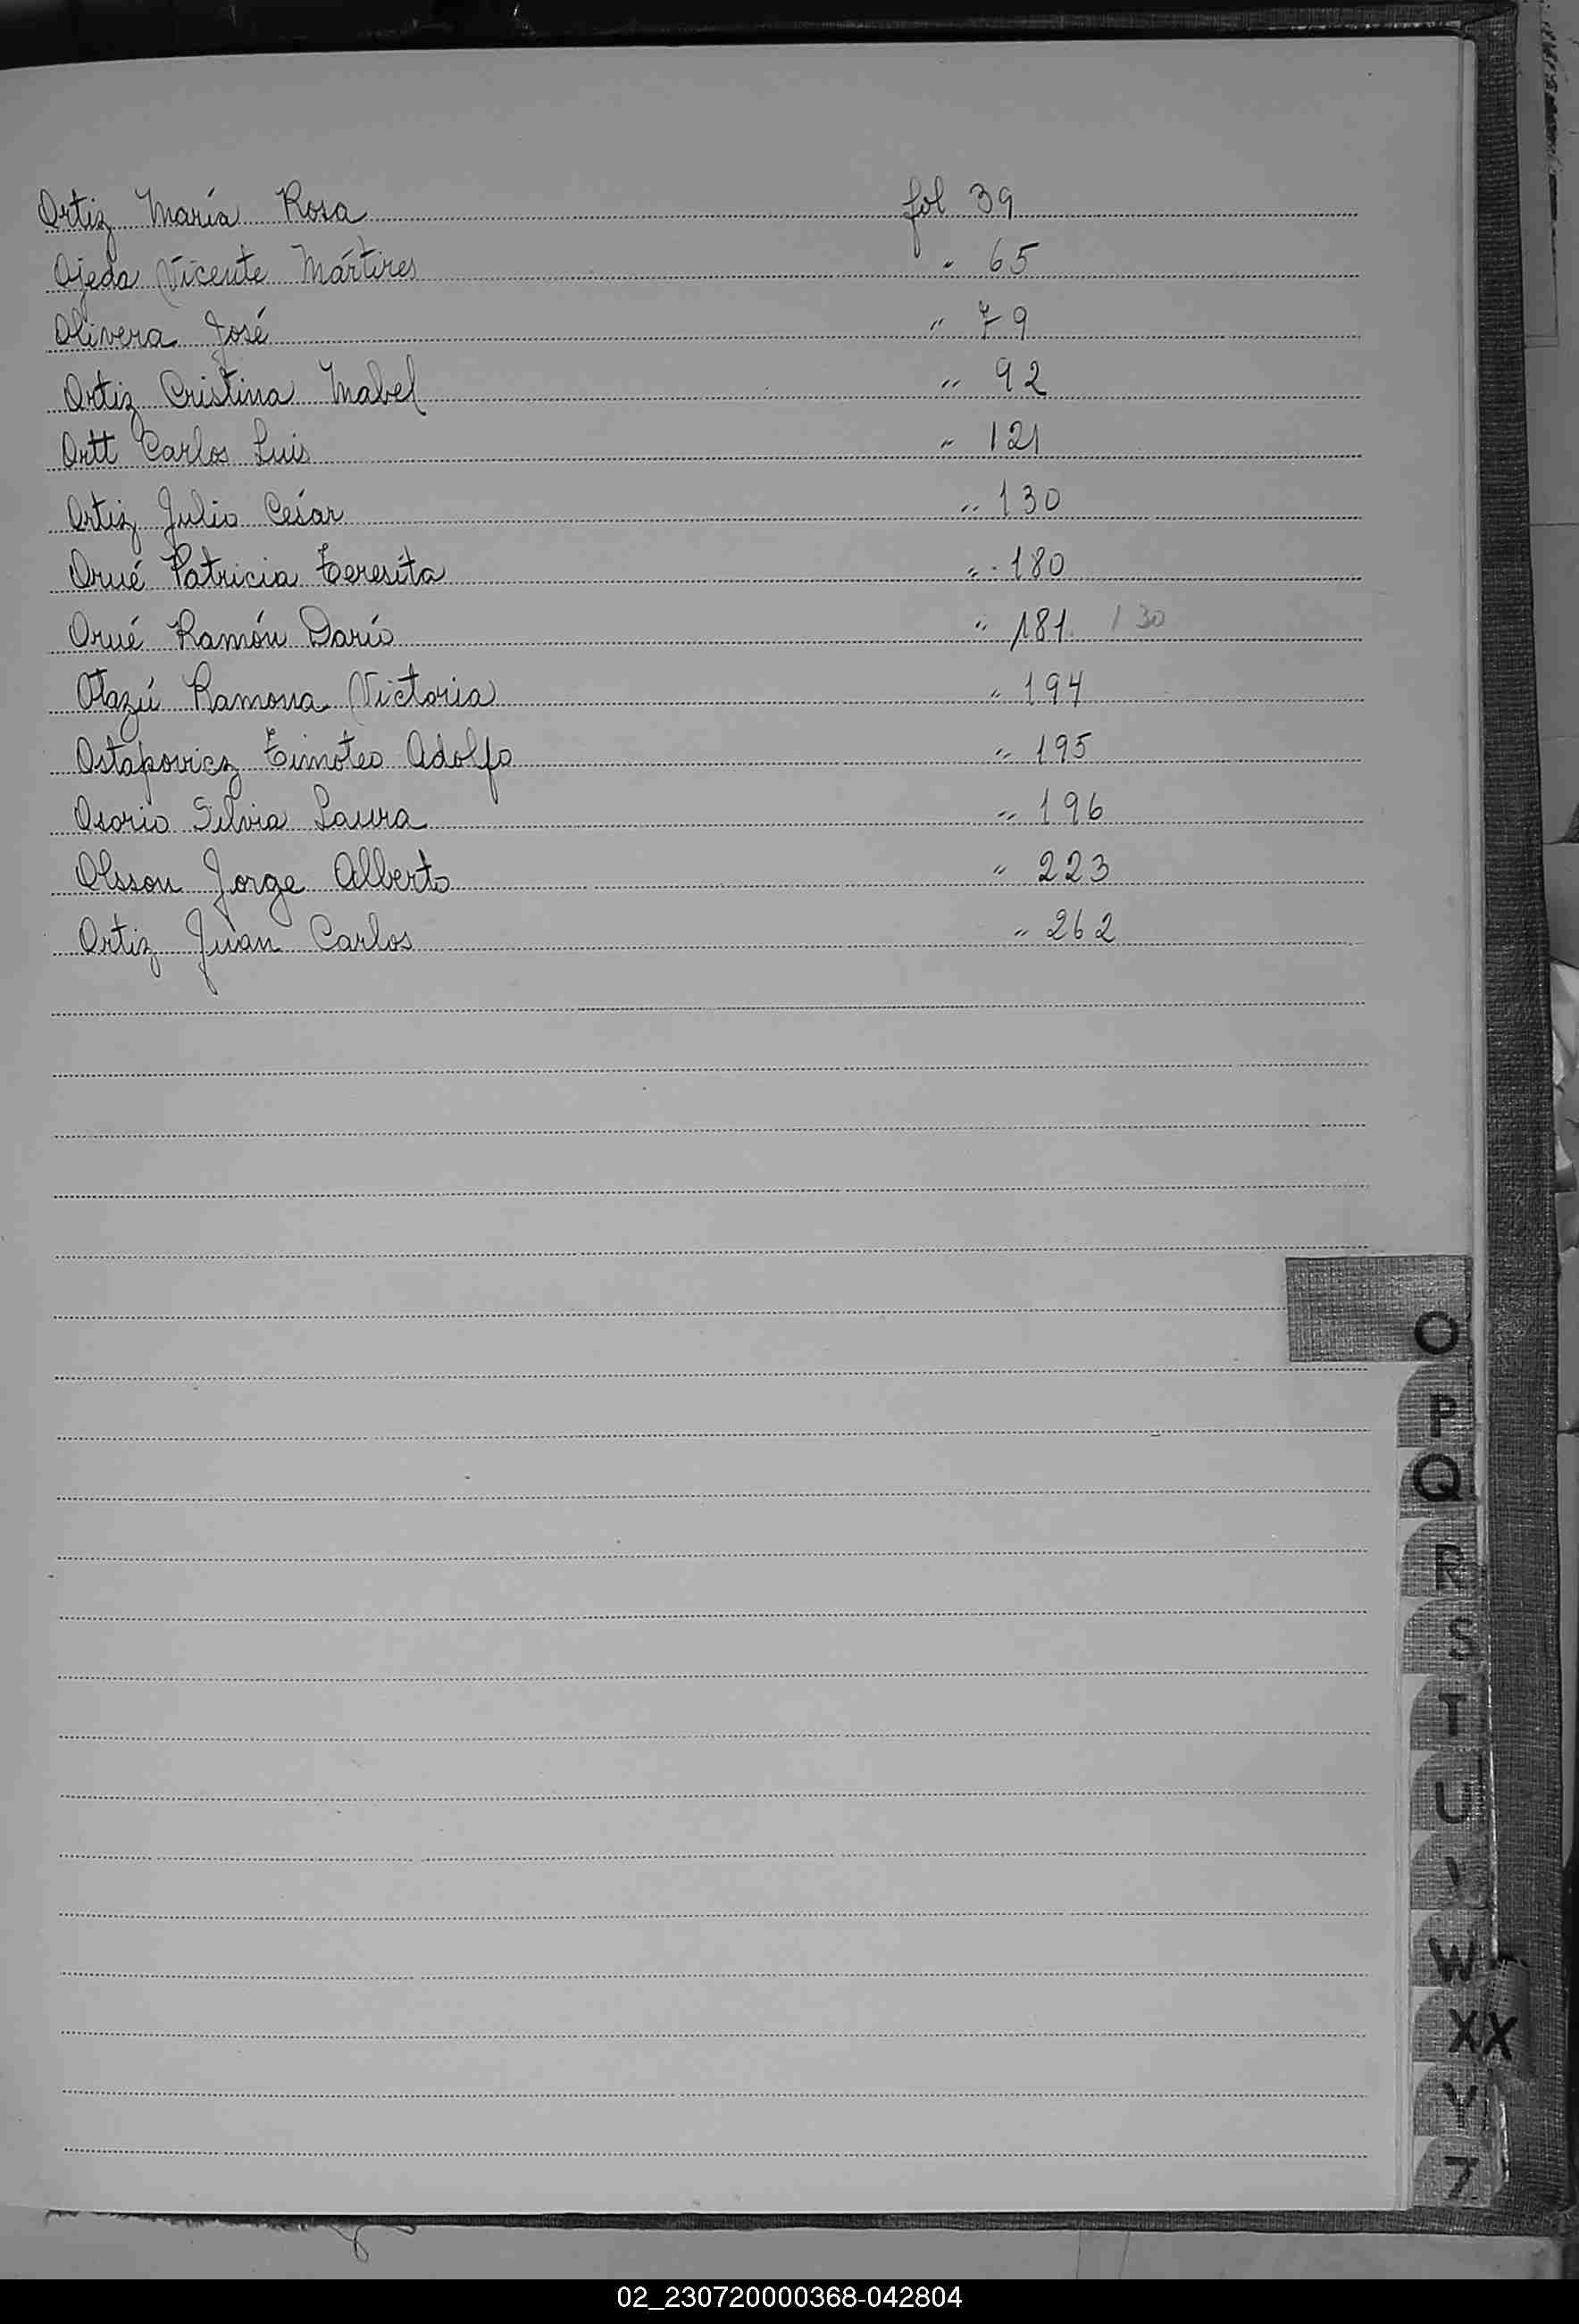 Ortiz María Rosa fol 39
Ojeda Vicente Mártires " 65
Olivera José " 79
Ortiz Cristina Mabel " 92
Ortt Carlos Luis " 121
Ortiz Julio César " 130
Orué Patricia Teresita " 180
Orué Ramón Darío " 181 130
Otazú Ramona Victoria " 194
Ostapovicz Timoteo Adolfo " 195
Osorio Silvia Laura " 196
Olsson Jorge Alberto " 223
Ortiz Juan Carlos " 262
O
P
Q
R
S
T
U
W
X X
Y
Z
02_230720000368-042804